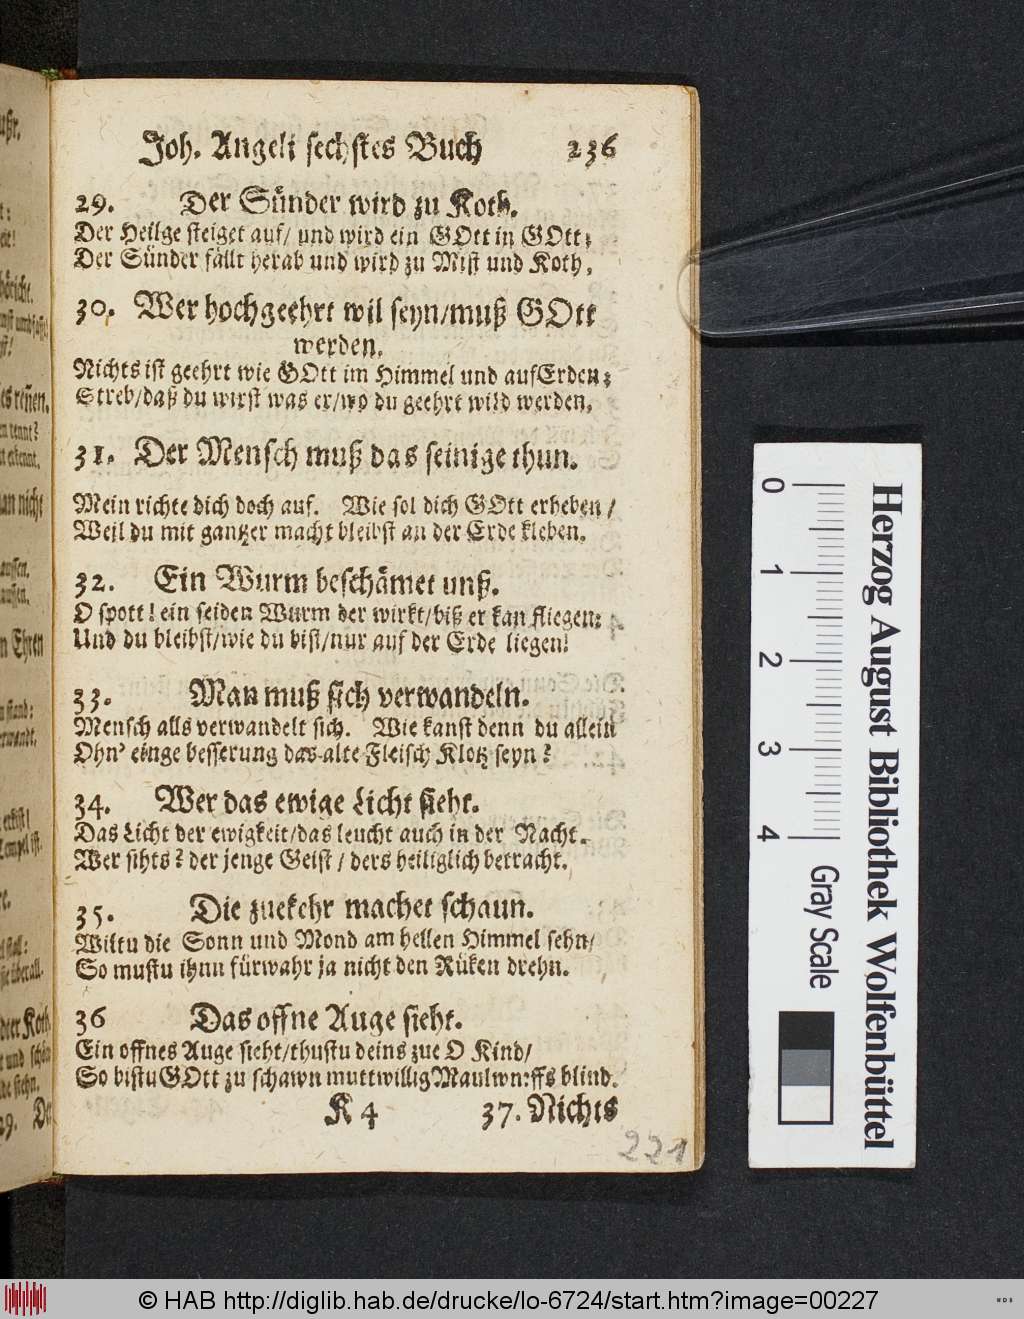 Joh. Angeli sechstes Buch 236
29. Der Sünder wird zu Koth.
Der Heilge steiget auf/ und wird ein GOtt in GOtt:
Der Sünder fällt herab und wird zu Mist und Koth.
30. Wer hochgeehrt wil seyn/muß GOtt
werden.
Nichts ist geehrt wie GOtt im Himmel und auf Erden:
Streb/daß du wirst was er/wo du geehrt wild werden.
31. Der Mensch muß das seinige thun.
Mein richte dich doch auf. Wie sol dich GOtt erheben/
Weil du mit gantzer macht bleibst an der Erde kleben.
32. Ein Wurm beschämet unß.
O spott! ein seiden Wurm der wirkt/biß er kan fliegen:
Und du bleibst/wie du bist/nur auf der Erde liegen!
33. Man muß sich verwandeln.
Mensch alls verwandelt sich. Wie kanst denn du allein
Ohn' einge besserung das alte Fleisch Klotz seyn?
34. Wer das ewige Licht sieht.
Das Licht der ewigkeit/das leucht auch in der Nacht.
Wer sihts? der jenge Geist/ ders heiliglich betracht.
35. Die zuekehr machet schaun.
Wiltu die Sonn und Mond am hellen Himmel sehn/
So mustu ihnn fürwahr ja nicht den Rüken drehn.
36 Das offne Auge sieht.
Ein offnes Auge sieht/thustu deins zue O Kind/
So bistu GOtt zu schawn muttwillig Maulwurffs blind.
K 4 37. Nichts
221
0 1 2 3 4
Gray Scale
Herzog August Bibliothek Wolfenbüttel
© HAB http://diglib.hab.de/drucke/lo-6724/start.htm?image=00227
WDB